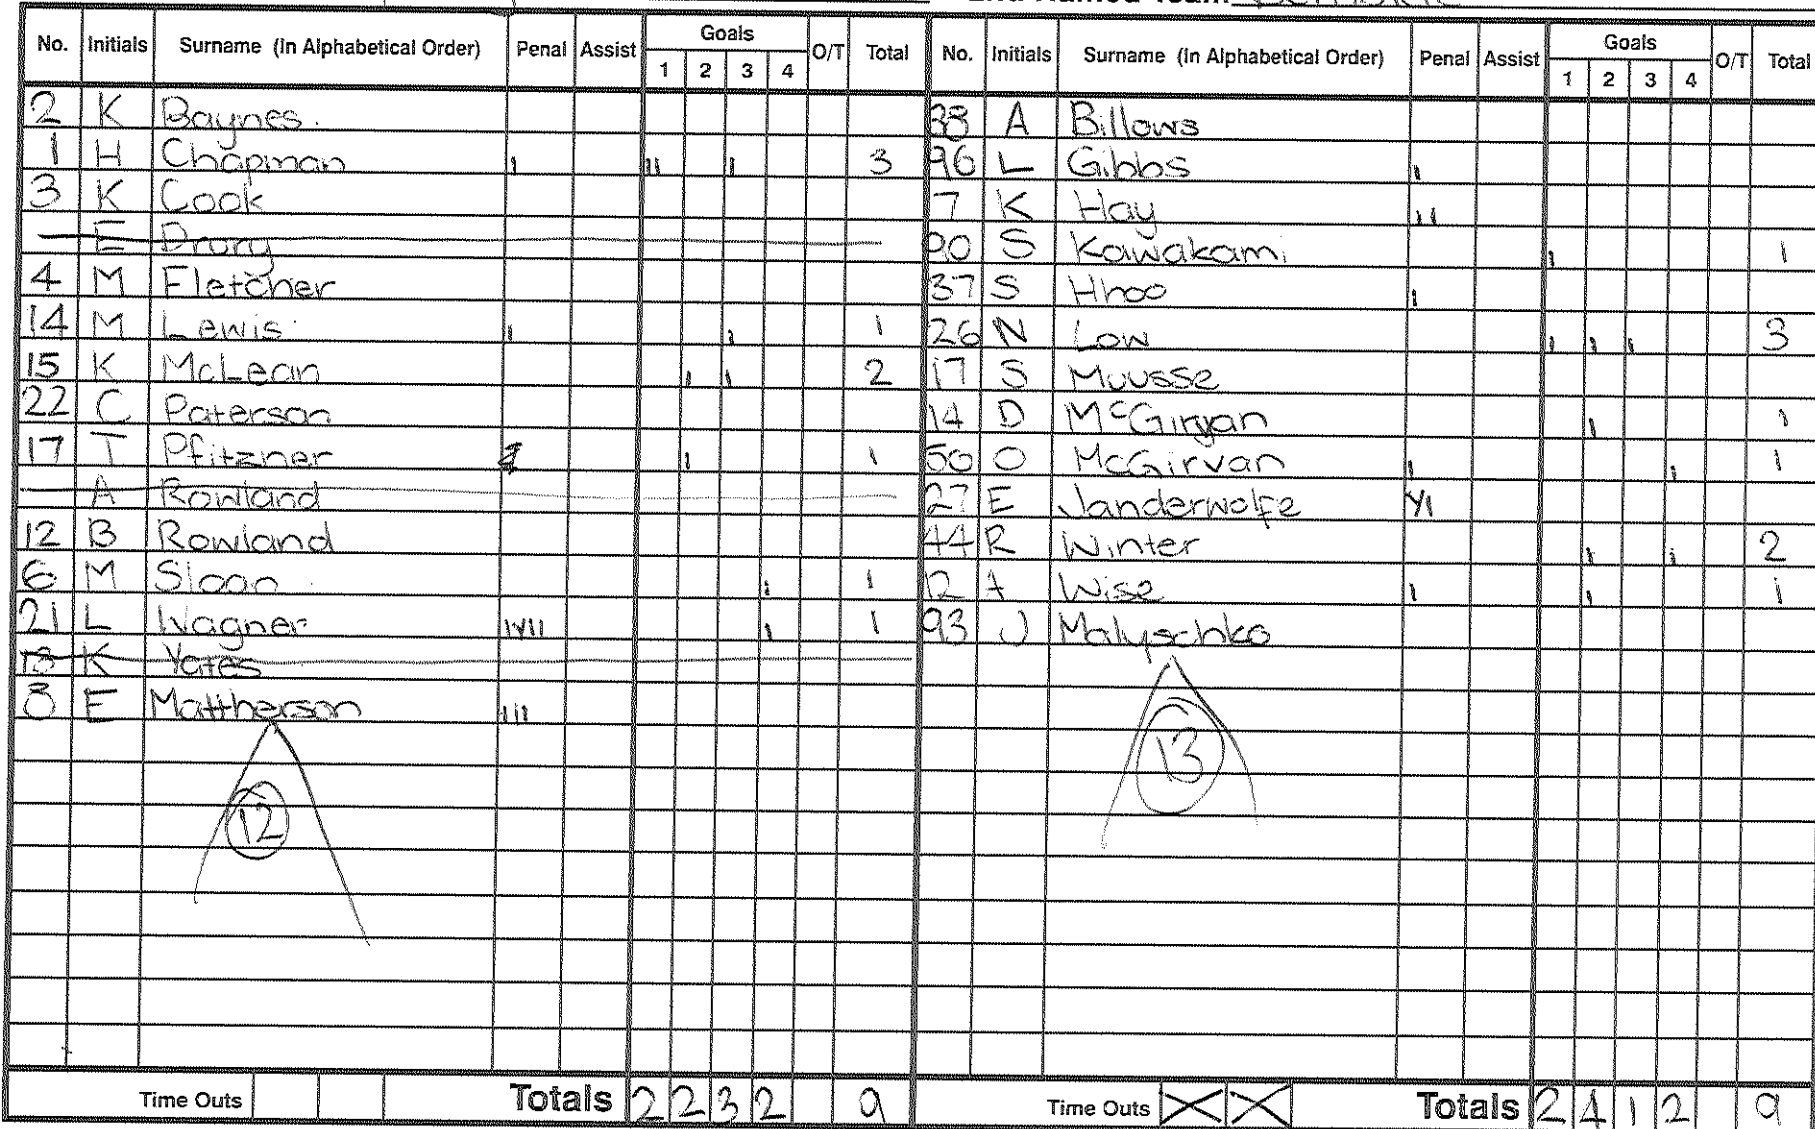 2nd Named Team
No. Initials Surname (In Alphabetical Order) Penal Assist Goals 1 2 3 4 O/T Total
2 K Baynes.
1 H Chapman I II I 3
3 K Cook
E Drury
4 M Fletcher
14 M Lewis I I 1
15 K McLean I I 2
22 C Paterson
17 T Pfitzner I 1
A Rowland
12 B Rowland
6 M Sloan I 1
21 L Wagner IYII I 1
18 K Yates
8 E Mattherson III
12
Time Outs Totals 2 2 3 2 9
No. Initials Surname (In Alphabetical Order) Penal Assist Goals 1 2 3 4 O/T Total
33 A Billows
96 L Gibbs I
7 K Hay II
90 S Kawakami I 1
37 S Hhoo I
26 N Low I I I 3
17 S Muusse
14 D I 1
50 O McGirvan I I 1
27 E Vanderwolfe YI
44 R Winter I I 2
12 A Wise I I 1
93 J Malyschko
13
Time Outs X X Totals 2 4 1 2 9